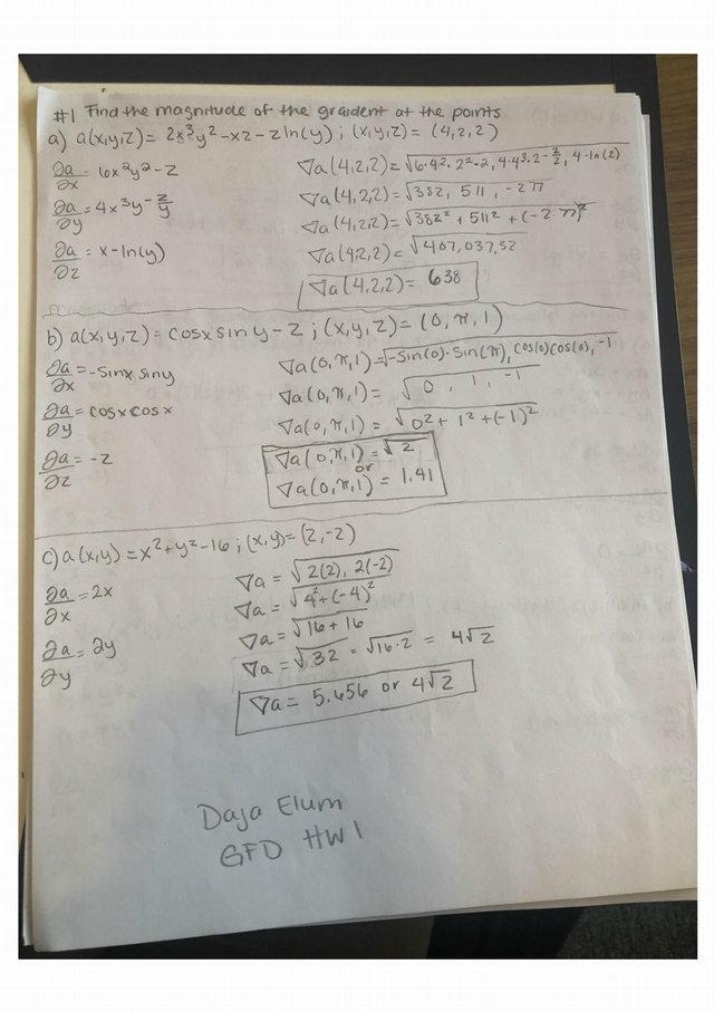 #1 Find the magnitude of the graident at the points
a) a(x,y,z) = 2x³y² - xz - z ln(y) ; (x,y,z) = (4,2,2)
∂a/∂x = 6x²y² - z
∂a/∂y = 4x³y - z/y
∂a/∂z = x - ln(y)
∇a(4,2,2) = √6·4²·2²-2, 4·4³·2 - 2/2, 4-ln(2)
∇a(4,2,2) = √382, 511, -2.77
∇a(4,2,2) = √382² + 511² + (-2.77)²
∇a(4,2,2) = √407,037,52
∇a(4,2,2) = 638
b) a(x,y,z) = cosx sin y - z ; (x,y,z) = (0, π, 1)
∂a/∂x = -sinx siny
∂a/∂y = cosx cosx
∂a/∂z = -z
∇a(0,π,1) = √-sin(0)·sin(π), cos(0)cos(0), -1
∇a(0,π,1) = √0, 1, -1
∇a(0,π,1) = √0² + 1² + (-1)²
∇a(0,π,1) = √2
or
∇a(0,π,1) = 1.41
c) a(x,y) = x² + y² - 16 ; (x,y) = (2,-2)
∂a/∂x = 2x
∂a/∂y = 2y
∇a = √2(2), 2(-2)
∇a = √4² + (-4)²
∇a = √16 + 16
∇a = √32 = √16·2 = 4√2
∇a = 5.656 or 4√2
Daja Elum
GFD HW1